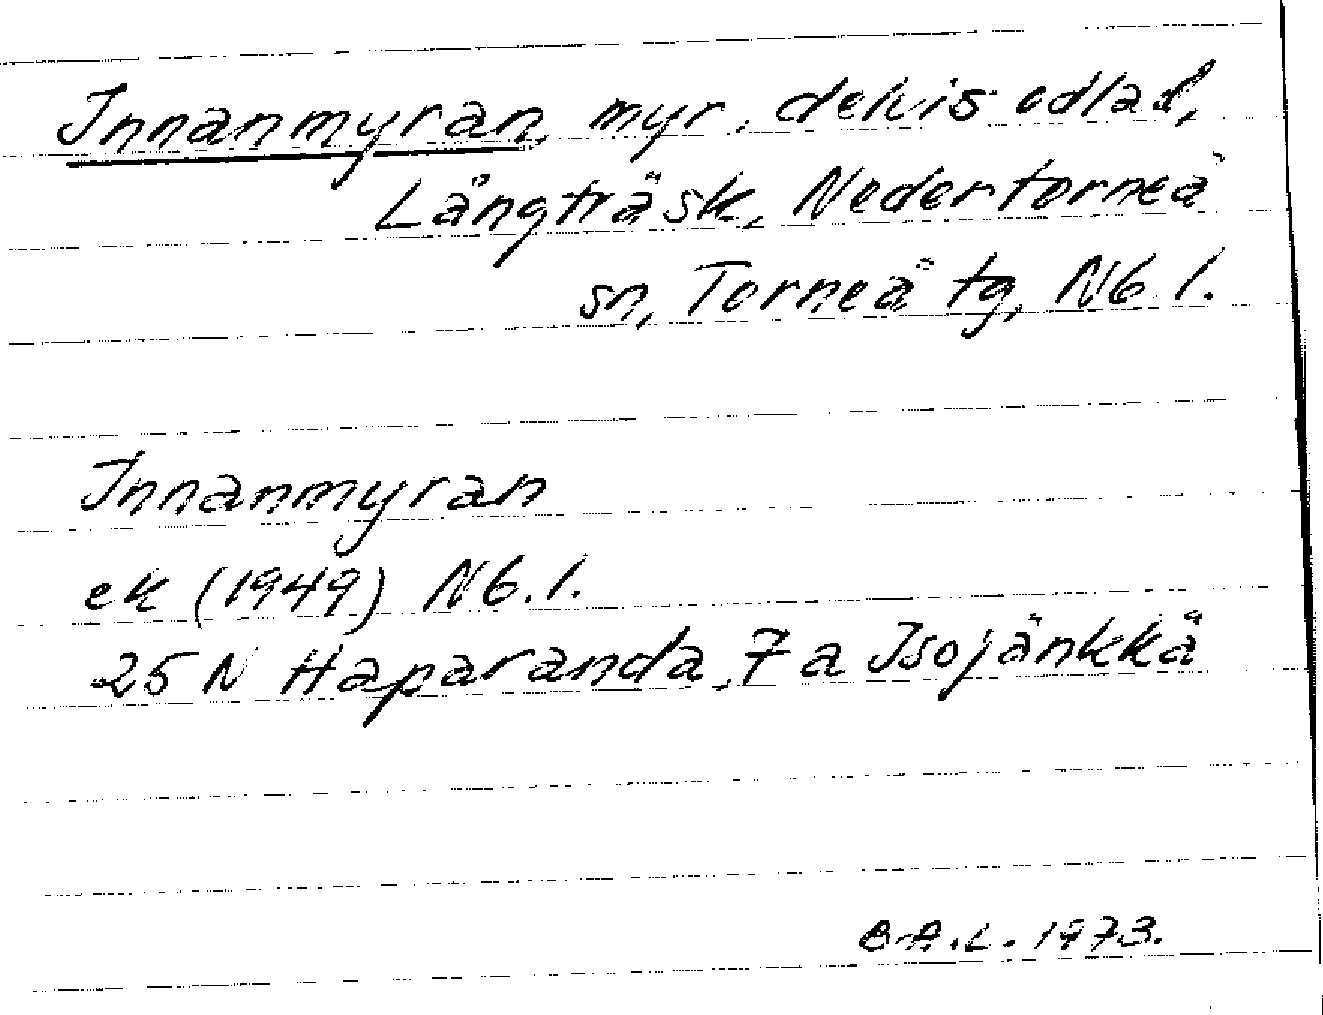 Innanmyran, myr, delvis odlad,
Långträsk, Nedertorneå
sn, Torneå tg, Nb l.
Innanmyran
ek (1949) Nb. l.
25 N Haparanda, 7 a Isojänkkä
B.A.L. 1973.